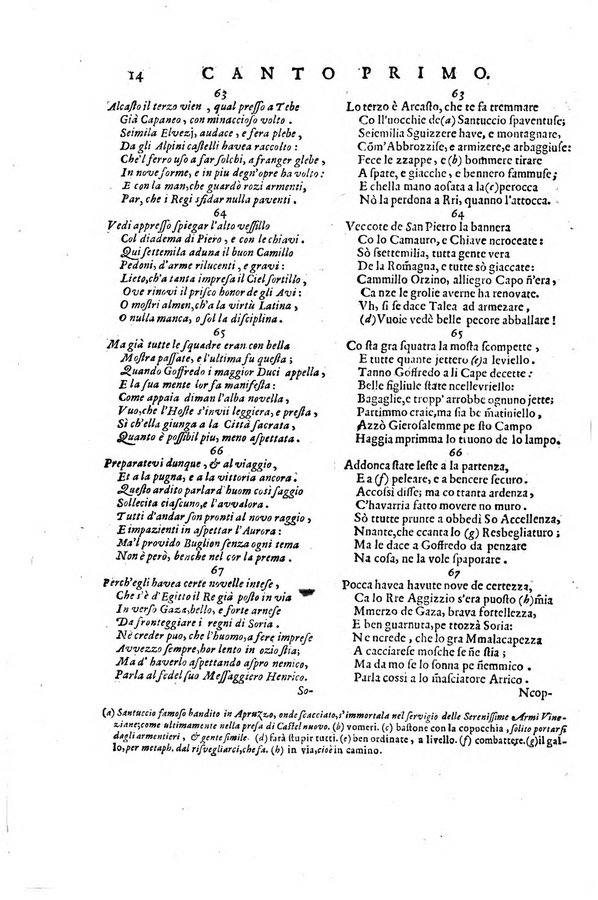 14 CANTO PRIMO.
63
Alcaſto il terzo vien, qual preſſo a Tebe
Già Capaneo, con minaccioso volto.
Seimila Elvezj, audace, e fera plebe,
Da gli Alpini caſtelli havea raccolto:
Che'l ferro uſo a far ſolchi, a franger glebe,
In nove forme, e in piu degn'opre ha volto:
E con la man, che guardò rozi armenti,
Par, che i Regi sfidar nulla paventi.
64
Vedi appreſſo ſpiegar l'alto veſſillo
Col diadema di Piero, e con le chiavi.
Qui ſettemila aduna il buon Camillo
Pedoni, d'arme rilucenti, e gravi:
Lieto, ch'a tanta impreſa il Ciel ſortillo,
Ove rinovi il priſco honor de gli Avi:
O moſtri almen, ch'a la virtù Latina,
O nulla manca, o ſol la diſciplina.
65
Ma già tutte le ſquadre eran con bella
Moſtra paſſate, e l'ultima fu queſta;
Quando Goffredo i maggior Duci appella,
E la ſua mente lor fa manifeſta:
Come appaia diman l'alba novella,
Vuo, che l'Hoſte s'invii leggiera, e preſta,
Sì ch'ella giunga a la Città ſacrata,
Quanto è poſſibil piu, meno aſpettata.
66
Preparatevi dunque, & al viaggio,
Et a la pugna, e a la vittoria ancora.
Queſto ardito parlar d'huom così ſaggio
Sollecita ciaſcuno, e l'avvalora.
Tutti d'andar ſon pronti al novo raggio,
E impazienti in aſpettar l'Aurora:
Ma'l provido Buglion ſenza ogni tema
Non è però, benche nel cor la prema.
67
Perch'egli havea certe novelle inteſe,
Che s'è d'Egitto il Re già poſto in via
In verſo Gaza, bello, e forte arneſe
Da fronteggiare i regni di Soria.
Nè creder può, che l'huomo, a fere impreſe
Avvezzo ſempre, hor lento in ozio ſtia;
Ma d'haverlo aſpettando aſpro nemico,
Parla al fedel ſuo Meſſaggiero Henrico.
So-
63
Lo terzo è Arcaſto, che te fa tremmare
Co ll'uocchie de(a) Santuccio ſpaventuſe;
Seiemilia Sguizzere have, e montagnare,
Cõm'Abbrozziſe, e armizere, e arbaggiuſe:
Fece le zzappe, e (b) bommere tirare
A ſpate, e giacche, e bennero fammuſe;
E chella mano aoſata a la(c)perocca
Nò la perdona a Rri, quanno l'attocca.
64
Veccote de San Pietro la bannera
Co lo Camauro, e Chiave ncroceate:
Sò ſsettemilia, tutta gente vera
De la Romagna, e tutte sò giaccate:
Cammillo Orzino, alliegro Capo n'era,
Ca nze le grolie averne ha renovate.
Vh, ſi ſe dace Talea ad armezare,
(d)Vuoie vedè belle pecore abballare!
65
Co ſta gra ſquatra la moſta ſcompette,
E tutte quante jettero (e)a leviello.
Tanno Goffredo a li Cape decette:
Belle figliule ſtate ncellevriello:
Bagaglie, e tropp' arrobbe ognuno jette;
Partimmo craie, ma ſia be matiniello,
Azzò Gieroſalemme pe ſto Campo
Haggia mprimma lo truono de lo lampo.
66
Addonca ſtate leſte a la partenza,
E a (f) peleare, e a bennere ſecuro.
Accoſsì diſſe; ma co ttanta ardenza,
C'havarria fatto movere no muro.
Sò ttutte prunte a obbedì So Accellenza,
Nnante, che ccanta lo (g) Resbegliaturo;
Ma le dace a Goffredo da penzare
Na coſa, ne la vole ſpaporare.
67
Pocca havea havute nove de certezza,
Ca lo Rre Aggizzio s'era puoſto (h)mìa
Mmerzo de Gaza, brava fortellezza,
E ben guarnuta, pe ttozzà Soria:
Ne ncrede, che lo gra Mmalacapezza
A cacciareſe moſche ſe ne ſtia;
Ma da mo ſe lo ſonna pe ñemmico.
Parla cossì a lo maſciatore Arrico.
Ncop-
(a) Santuccio famoſo bandito in Apruzzo, onde ſcacciato, s'immortala nel ſervigio delle Sereniſſime Armi Vine-
ziane; come ultimamente nella preſa di Caſtel nuovo. (b) vomeri. (c) baſtone con la copocchia, ſolito portarſi
dagli armentieri, & gente ſimile. (d) farà ſtupir tutti. (e) ben ordinate, a livello. (f) combattere. (g) il gal-
lo, per metaph. dal riſvegliarci, che fa. (h) in via, cioè in camino.